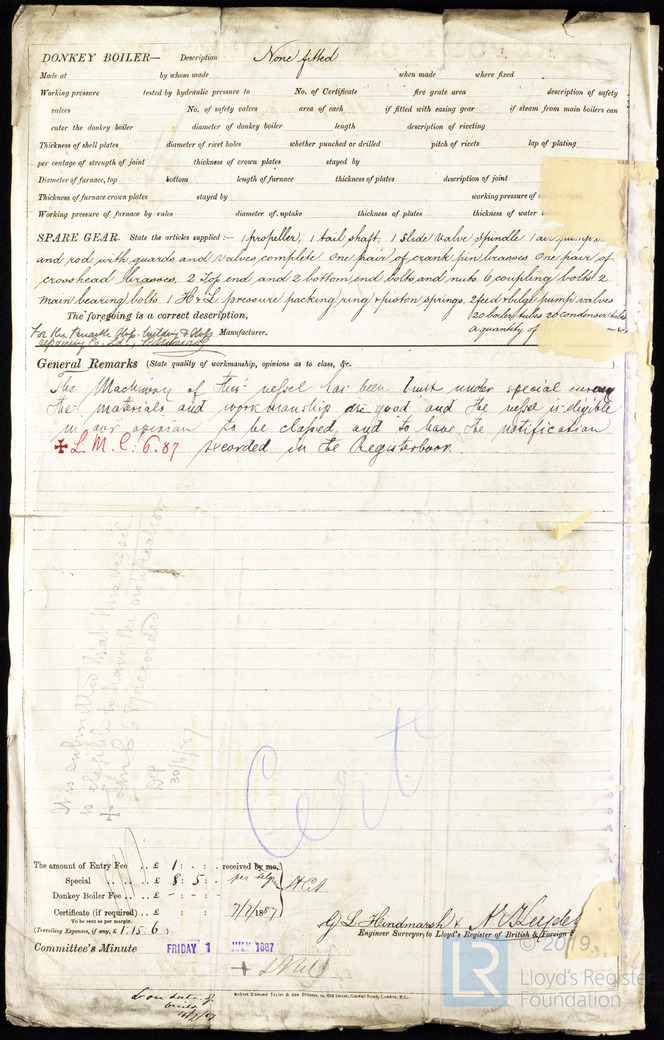 DONKEY BOILER— Description None fitted
Made at by whom made when made where fixed
Working pressure tested by hydraulic pressure to No. of Certificate fire grate area description of safety
valves No. of safety valves area of each if fitted with easing gear if steam from main boilers can
enter the donkey boiler diameter of donkey boiler length description of riveting
Thickness of shell plates diameter of rivet holes whether punched or drilled pitch of rivets lap of plating
per centage of strength of joint thickness of crown plates stayed by
Diameter of furnace, top bottom length of furnace thickness of plates description of joint
Thickness of furnace crown plates stayed by working pressure of
Working pressure of furnace by rules diameter of uptake thickness of plates thickness of water
SPARE GEAR. State the articles supplied:— 1 propeller, 1 tail shaft, 1 slide valve spindle 1 air pump
and rod with guards and valves complete One pair of crank pin brasses One pair of
crosshead brasses, 2 Top end and 2 bottom end bolts and nuts 6 coupling bolts 2
main bearing bolts 1 H & L pressure packing ring & piston springs, 2 feed & bilge pump valves
The foregoing is a correct description, 20 boiler tubes 20 condenser tubes
For the Penarth Ship building & Ship Manufacturer. a quantity of
repairing Co. Ltd.
General Remarks (State quality of workmanship, opinions as to class, &c.
The Machinery of this vessel has been built under special survey
the materials and workmanship are good and the vessel is eligible
in our opinion to be classed and to have the notification
✠ L.M.C. 6.87 recorded in the Registerbook.
It is submitted that this vessel
is eligible to have the notification
+ LMC 6 87 recorded
30/6/87
Cert
The amount of Entry Fee .. £ 1 : - : received by me,
Special .. .. £ 8 : 5 :
Donkey Boiler Fee .. £ - : - :
Certificate (if required) .. £ : : 7/7/1887
To be sent as per margin.
(Travelling Expenses, if any, £ 1.15.6)
G L Hindmarsh &
Engineer Surveyor, to Lloyd's Register of British & Foreign
Committee's Minute FRIDAY 1 JULY 1887
+
Robert Edmund Taylor & Son Printers, 19, Old Street, Goswell Road, London, E.C.
LR © 2019
Lloyd's Register
Foundation